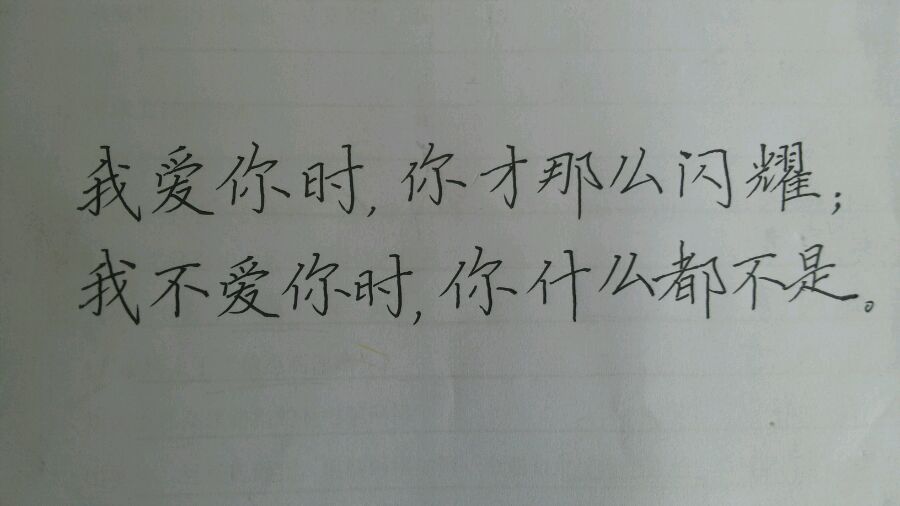 我爱你时,你才那么闪耀;
我不爱你时,你什么都不是。